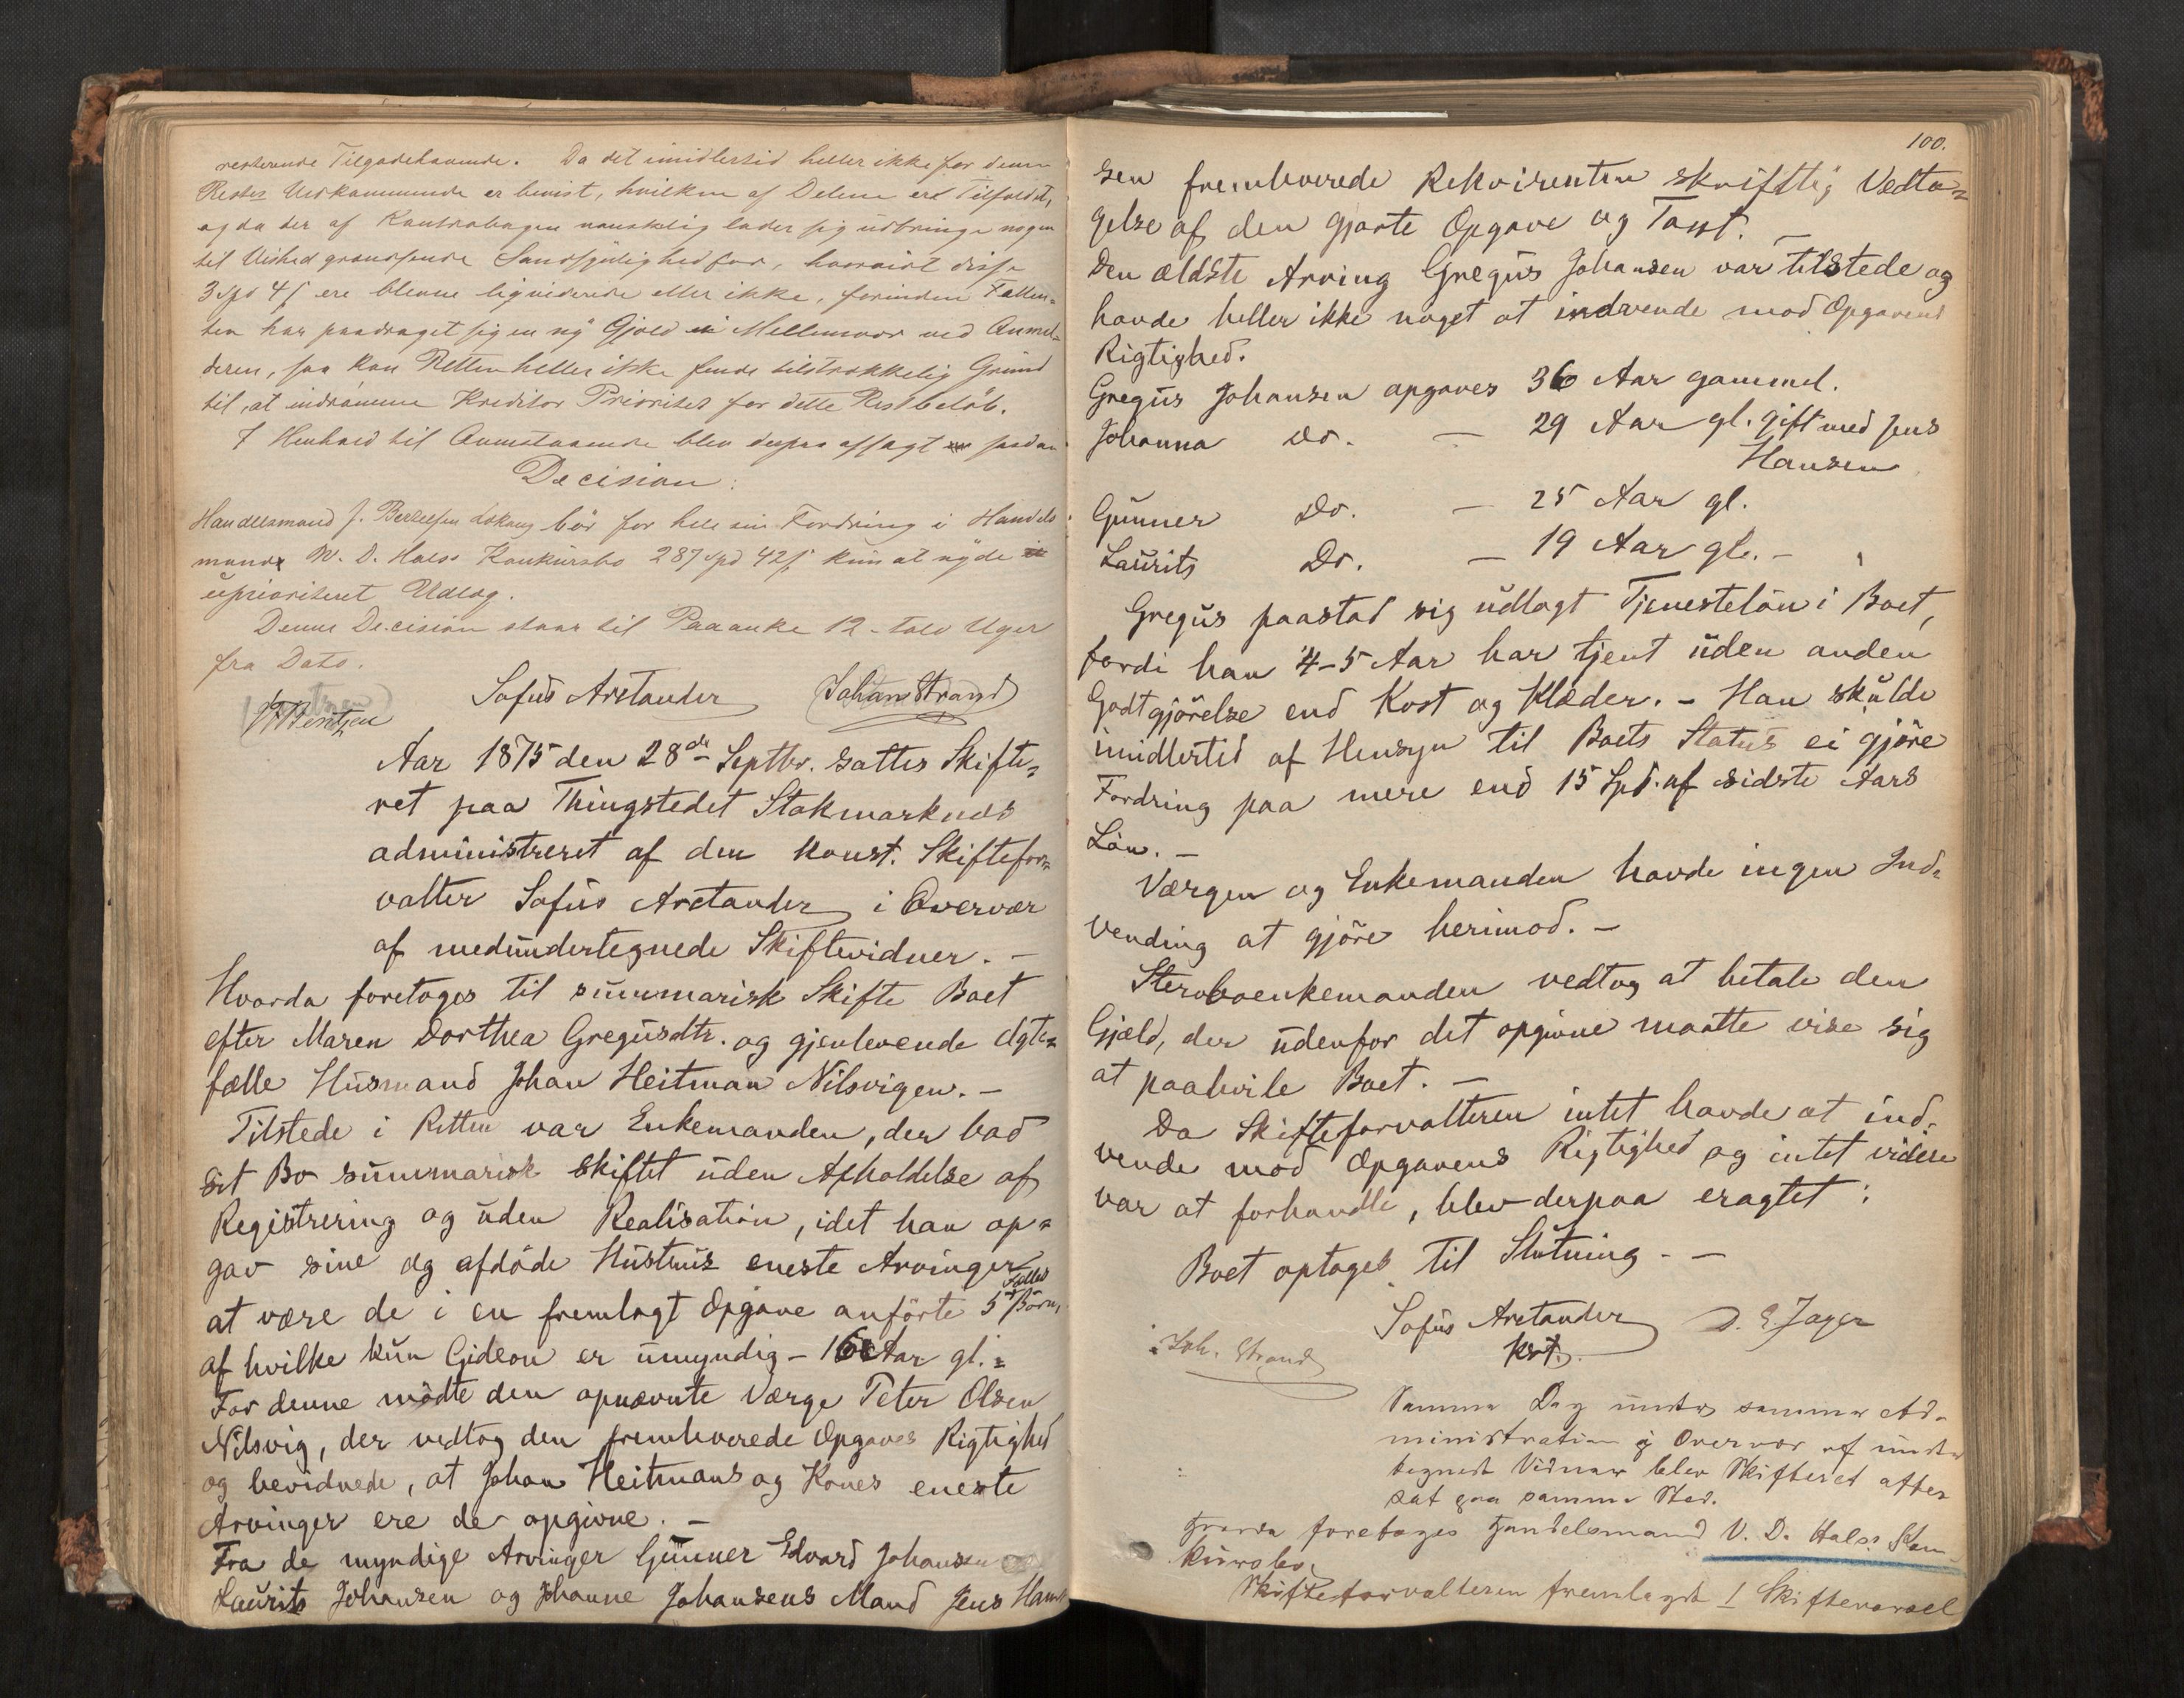 resterende Tilgodehavende. Da det imidlertid heller ikke for denne
Restes Vedkommende er bevist, hvilken af Delene er Tilfældet,
og da der af Kontrabogen vanskelig lader sig udbringe nogen
til Vished grændsende Sandsynlighed for, hvorvidt disse
3 Spd 4 ß ere blevne liquiderede eller ikke, forinden Fallen-
ten har paadraget sig en ny Gjæld i Mellemvær med Anmel-
deren, saa kan Retten heller ikke finde tilstrækkelig Grund
til, at indrømme Kreditor Prioritet for dette Restbeløb.
I Henhold til Anmstaaende blev derpaa afsagt saadan
Decision:
Handelsmand J. Lokang bør for hele sin Fordring i Handels
mand W. D. Halss Konkursbo 287 Spd 42 ß kun at nyde
uprioriteret Udlæg.
Denne Decision staar til Paaanke 12 - tolv Uger
fra Dato.
Bentzen Sofus Arctander Johan Strand
Aar 1875 den 28de Septbr. sattes Skifte-
ret paa Thingstedet Stokmarknæs
administreret af den konst. Skiftefor-
valter Sofus Arctander i Overvær
af medundertegnede Skiftevidner. -
Hvorda foretoges til summarisk Skifte Boet
efter Maren Dorthea Gregusdtr. og gjenlevende Ægte-
fælle Husmand Johan Heitman Nilsvigen. -
Tilstede i Retten var Enkemanden, der bad
sit Bo summarisk skiftet uden Afholdelse af
Registrering og uden Realisation, idet han op-
gav sine og afdøde Hustrus eneste Arvinger
at være de i en fremlagt Opgave anførte 5 Fælles Børn,
af hvilke kun Gideon er umyndig - 16 Aar gl. -
For denne mødte den opnævnte Værge Peter Olsen
Nilsvig, der vedtog den fremhverede Opgaves Rigtighed
og bevidnede, at Johan Heitmans og Kones eneste
Arvinger ere de opgivne. -
Fra de myndige Arvinger Gunner Edvard Johansen
Laurits Johansen og Johanne Johansens Mand Jens Han-
100.
sen fremhverede Rekvirenten skriftlig Vedta-
gelse af den gjorte Opgave og Taxt. -
Den ældste Arving Gregus Johansen var tilstede og
havde heller ikke noget at indvende mod Opgavens
Rigtighed.
Gregus Johansen opgaves 36 Aar gammel.
Johanna Do. - 29 Aar gl. gift med Jens
Hansen
Gunner Do. - 25 Aar gl.
Laurits Do. - 19 Aar gl. -
Gregus paastod sig udlagt Tjenesteløn i Boet,
fordi han 4-5 Aar har tjent uden anden
Godtgjørelse end Kost og Klæder. - Han skulde
imidlertid af Hensyn til Boets Status ei gjøre
Fordring paa mere end 15 Spd. af sidste Aars
Løn. -
Værgen og Enkemanden havde ingen Ind-
vending at gjøre herimod. -
Sterboenkemanden vedtog at betale den
Gjæld, der udenfor det opgivne maatte vise sig
at paahvile Boet. -
Da Skifteforvalteren intet havde at ind-
vende mod Opgavens Rigtighed og intet videre
var at forhandle, blev derpaa eragtet:
Boet optages til Slutning. -
Sofus Arctander D. E. Jager
kst.
Joh. Strand
Samme Dag under samme Ad-
ministration i Overvær af under-
tegnede Vidner blev Skifteret atter
sat paa samme Sted.
Hvorda foretoges Handelsmand V. D. Halss Kon-
kursbo.
Skifteforvalteren fremlagde 1 Skiftevarsel